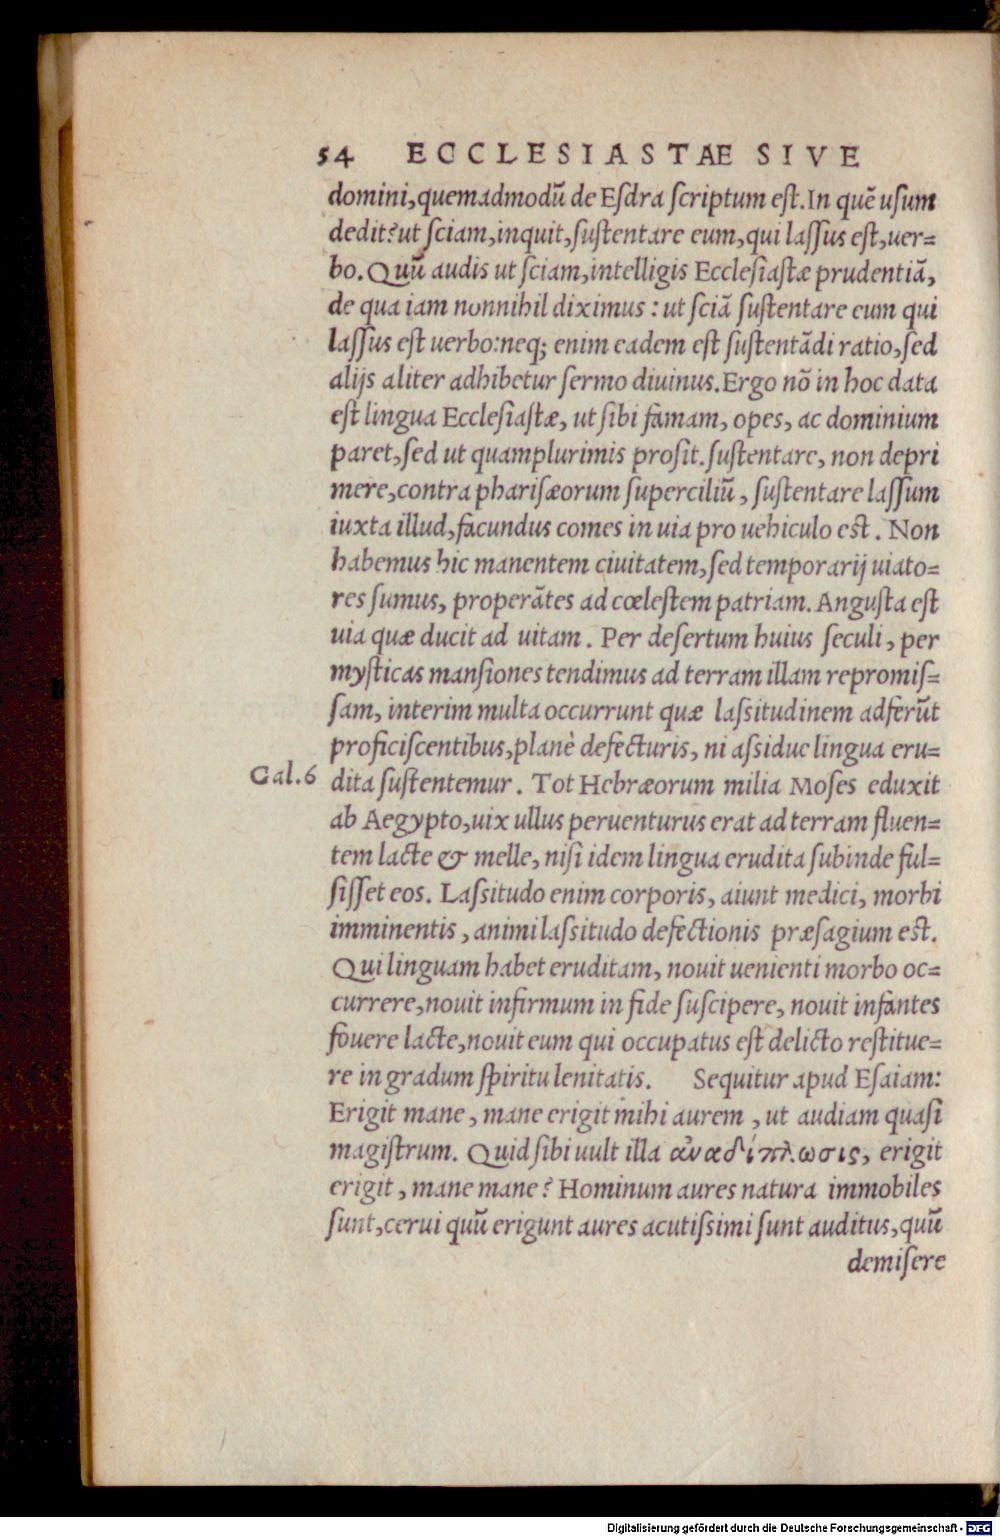 54 ECCLESIASTAE SIVE
domini,quemadmodū de Esdra scriptum est.In quē usum
dedit?ut sciam,inquit,sustentare eum,qui lassus est,uer=
bo.Quū audis ut sciam,intelligis Ecclesiastæ prudentiā,
de qua iam nonnihil diximus : ut sciā sustentare eum qui
lassus est uerbo:neq; enim eadem est sustentādi ratio,sed
alijs aliter adhibetur sermo diuinus.Ergo nō in hoc data
est lingua Ecclesiastæ, ut sibi famam, opes, ac dominium
paret,sed ut quamplurimis prosit.sustentare, non depri
mere,contra pharisæorum superciliū, sustentare lassum
iuxta illud,facundus comes in uia pro uehiculo est. Non
habemus hic manentem ciuitatem,sed temporarij uiato=
res sumus, properātes ad cœlestem patriam. Angusta est
uia quæ ducit ad uitam. Per desertum huius seculi, per
mysticas mansiones tendimus ad terram illam repromis=
sam, interim multa occurrunt quæ lassitudinem adferūt
proficiscentibus,planè defecturis, ni assidue lingua eru=
Gal.6 dita sustentemur. Tot Hebræorum milia Moses eduxit
ab Aegypto,uix ullus peruenturus erat ad terram fluen=
tem lacte & melle, nisi idem lingua erudita subinde ful=
sisset eos. Lassitudo enim corporis, aiunt medici, morbi
imminentis, animi lassitudo defectionis præsagium est.
Qui linguam habet eruditam, nouit uenienti morbo oc=
currere,nouit infirmum in fide suscipere, nouit infantes
fouere lacte,nouit eum qui occupatus est delicto restitue=
re in gradum spiritu lenitatis. Sequitur apud Esaiam:
Erigit mane, mane erigit mihi aurem, ut audiam quasi
magistrum. Quid sibi uult illa ἀναδίπλωσις, erigit
erigit, mane mane? Hominum aures natura immobiles
sunt,cerui quū erigunt aures acutissimi sunt auditus,quū
demisere
Digitalisierung gefördert durch die Deutsche Forschungsgemeinschaft - DFG